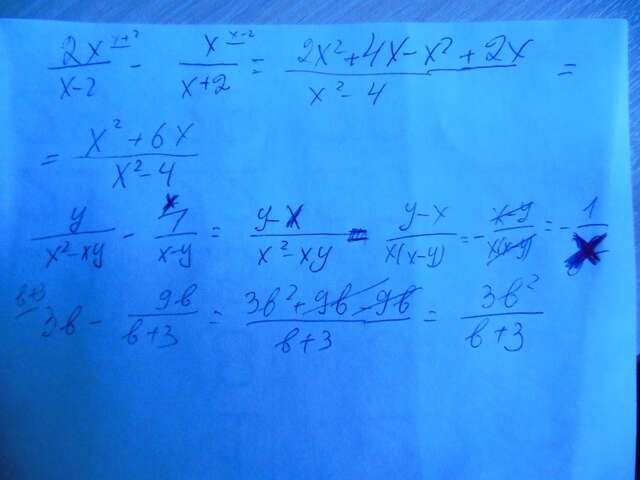 2x^{x+2}/x-2 - x^{x-2}/x+2 = 2x²+4x-x²+2x/x²-4 =
= x²+6x/x²-4
y/x²-xy - 1^{x}/x-y = y-x/x²-xy = y-x/x(x-y) = -x-y/x(x-y) = -1/x
^{в+3}3в - 9в/в+3 = 3в²+9в-9в/в+3 = 3в²/в+3